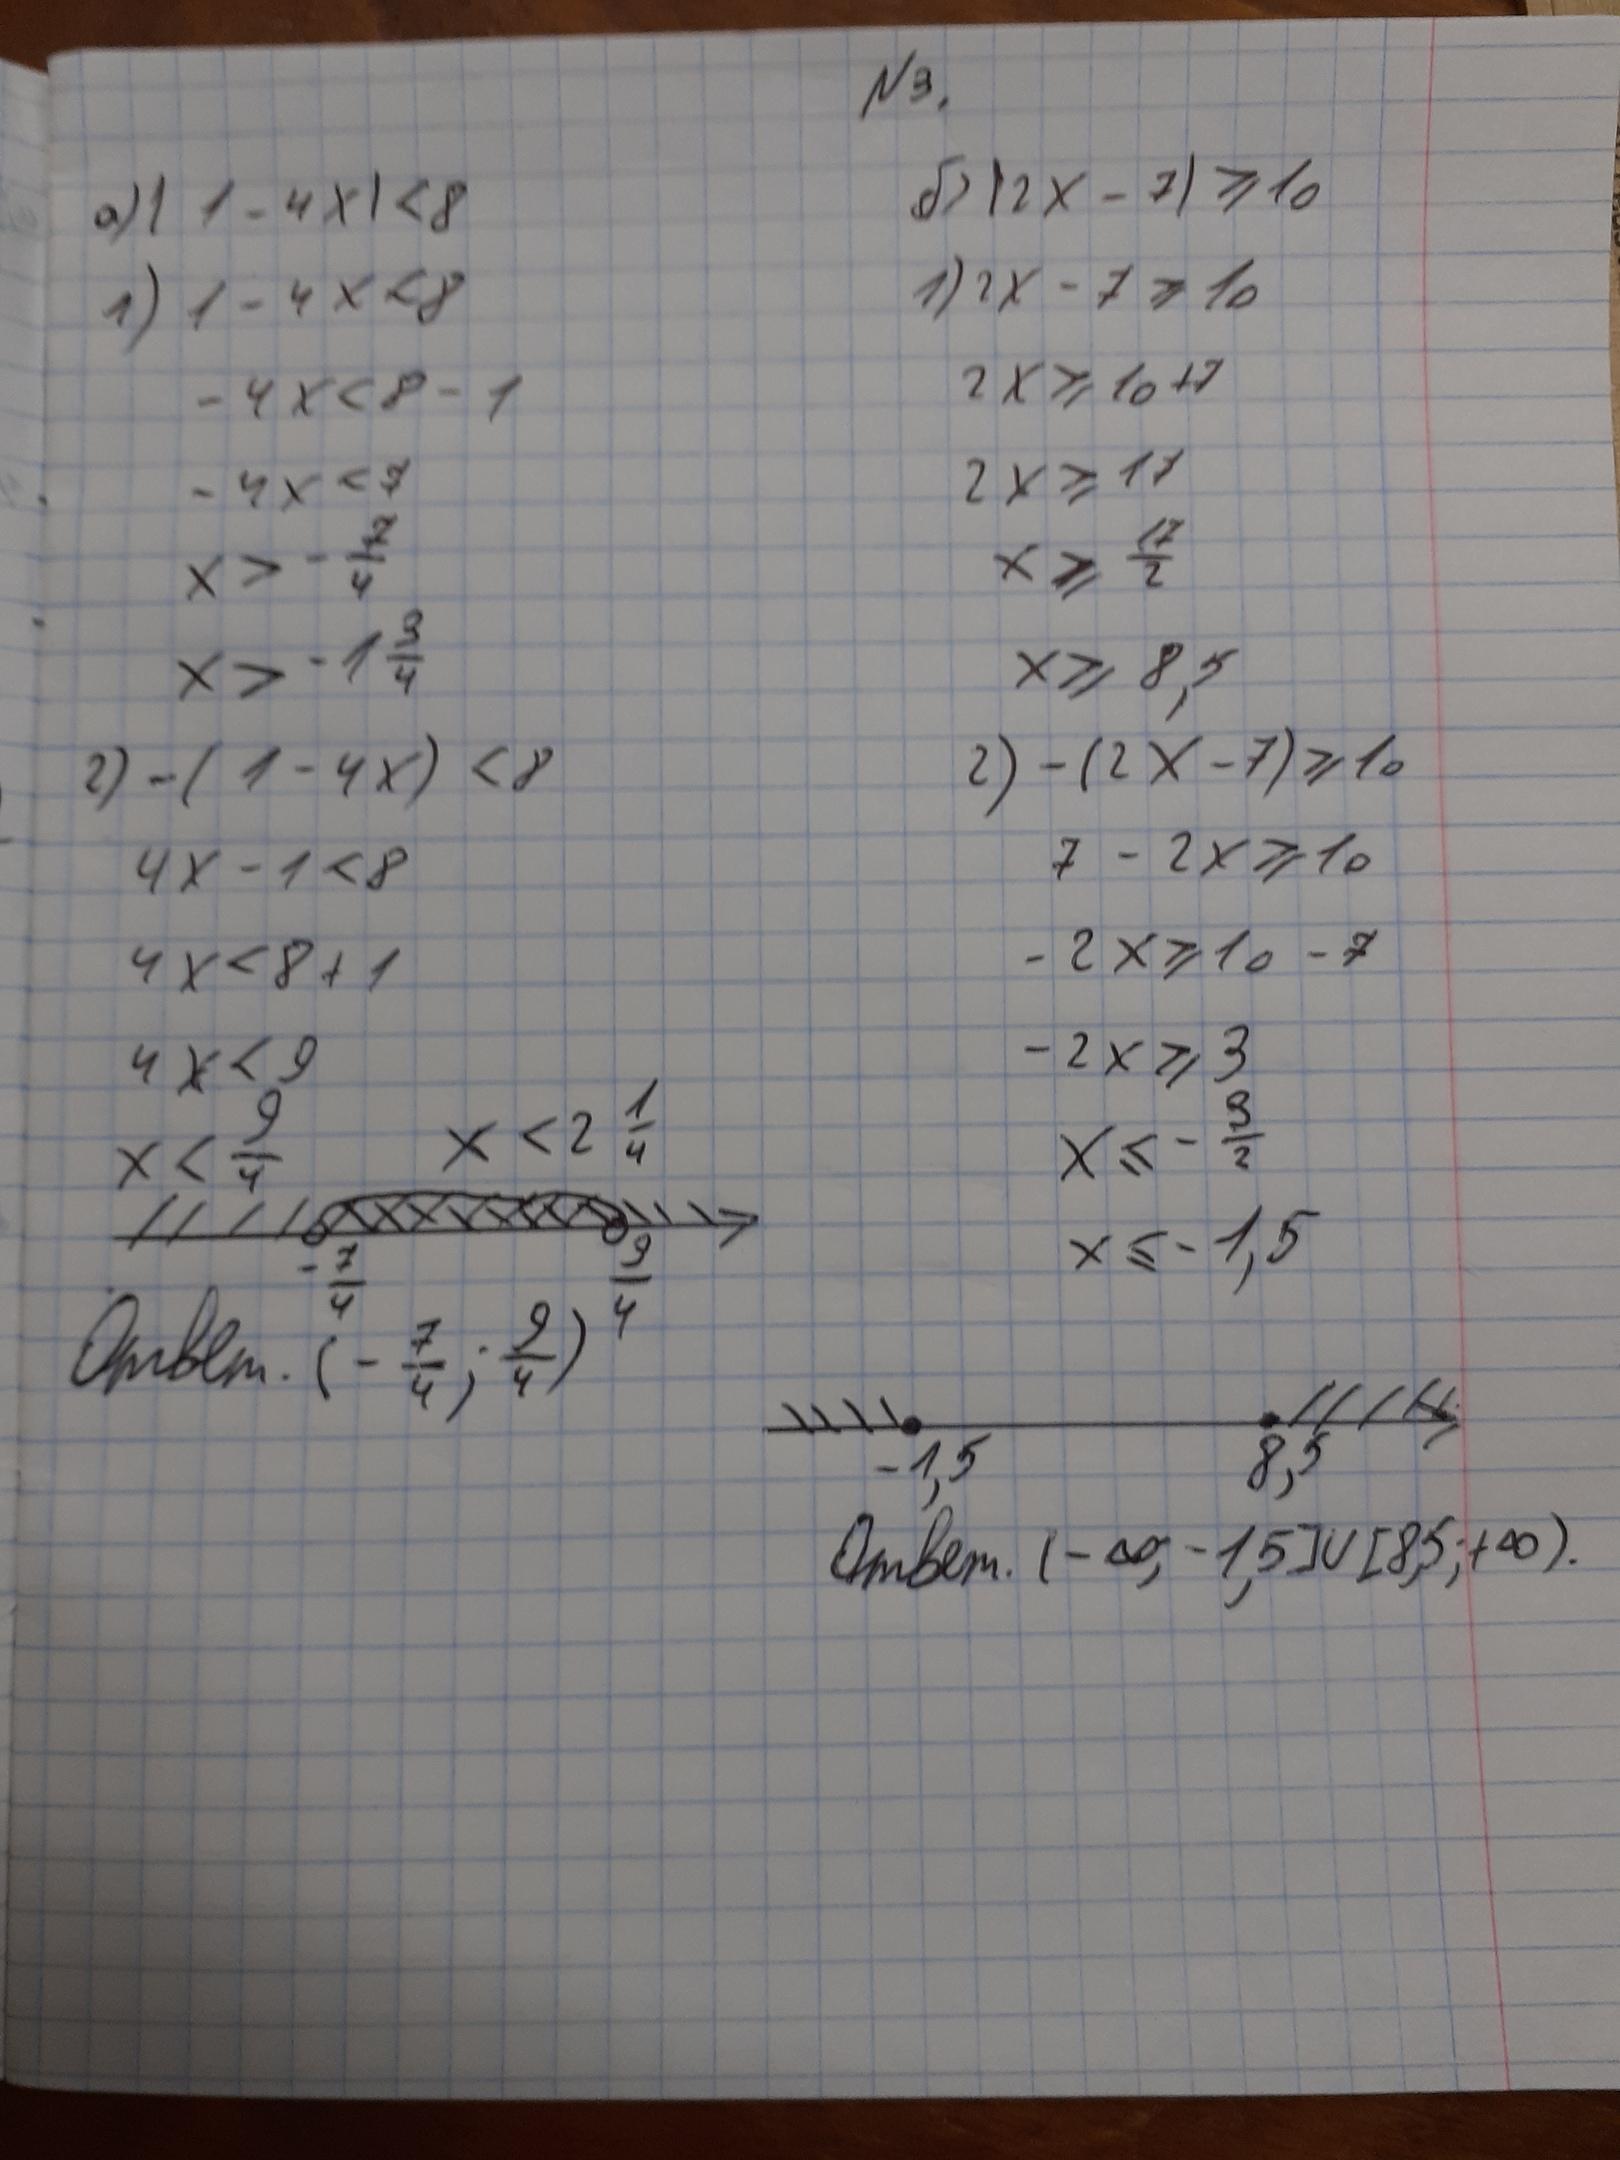 N3.
а) |1 - 4x| < 8
1) 1 - 4x < 8
-4x < 8 - 1
-4x < 7
x > -7/4
x > -1 3/4
2) -(1 - 4x) < 8
4x - 1 < 8
4x < 8 + 1
4x < 9
x < 9/4 x < 2 1/4
-7/4 9/4
Ответ. (-7/4; 9/4)
б) |2x - 7| ⩾ 10
1) 2x - 7 ⩾ 10
2x ⩾ 10 + 7
2x ⩾ 17
x ⩾ 17/2
x ⩾ 8,5
2) -(2x - 7) ⩾ 10
7 - 2x ⩾ 10
-2x ⩾ 10 - 7
-2x ⩾ 3
x ⩽ -3/2
x ⩽ -1,5
-1,5 8,5
Ответ. (-∞; -1,5]∪[8,5; +∞).